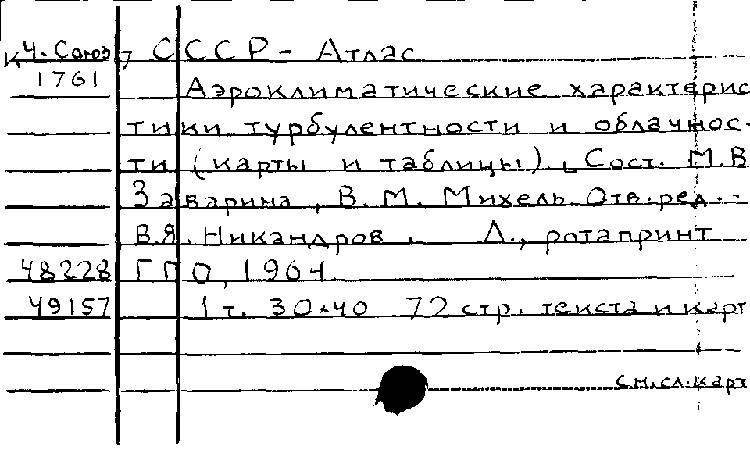 К4. Союз СССР - Атлас
1761
Аэроклиматические характерис
тики турбулентности и облачнос-
ти (карты и таблицы). Сост. М.В
Заварина, В.М. Михель. Отв. ред. -
В.Я. Никандров. Л., ротапринт
48228 ГГО, 1964.
49157 1 т. 30×40 72 стр. текста и карт
см. сл. карт